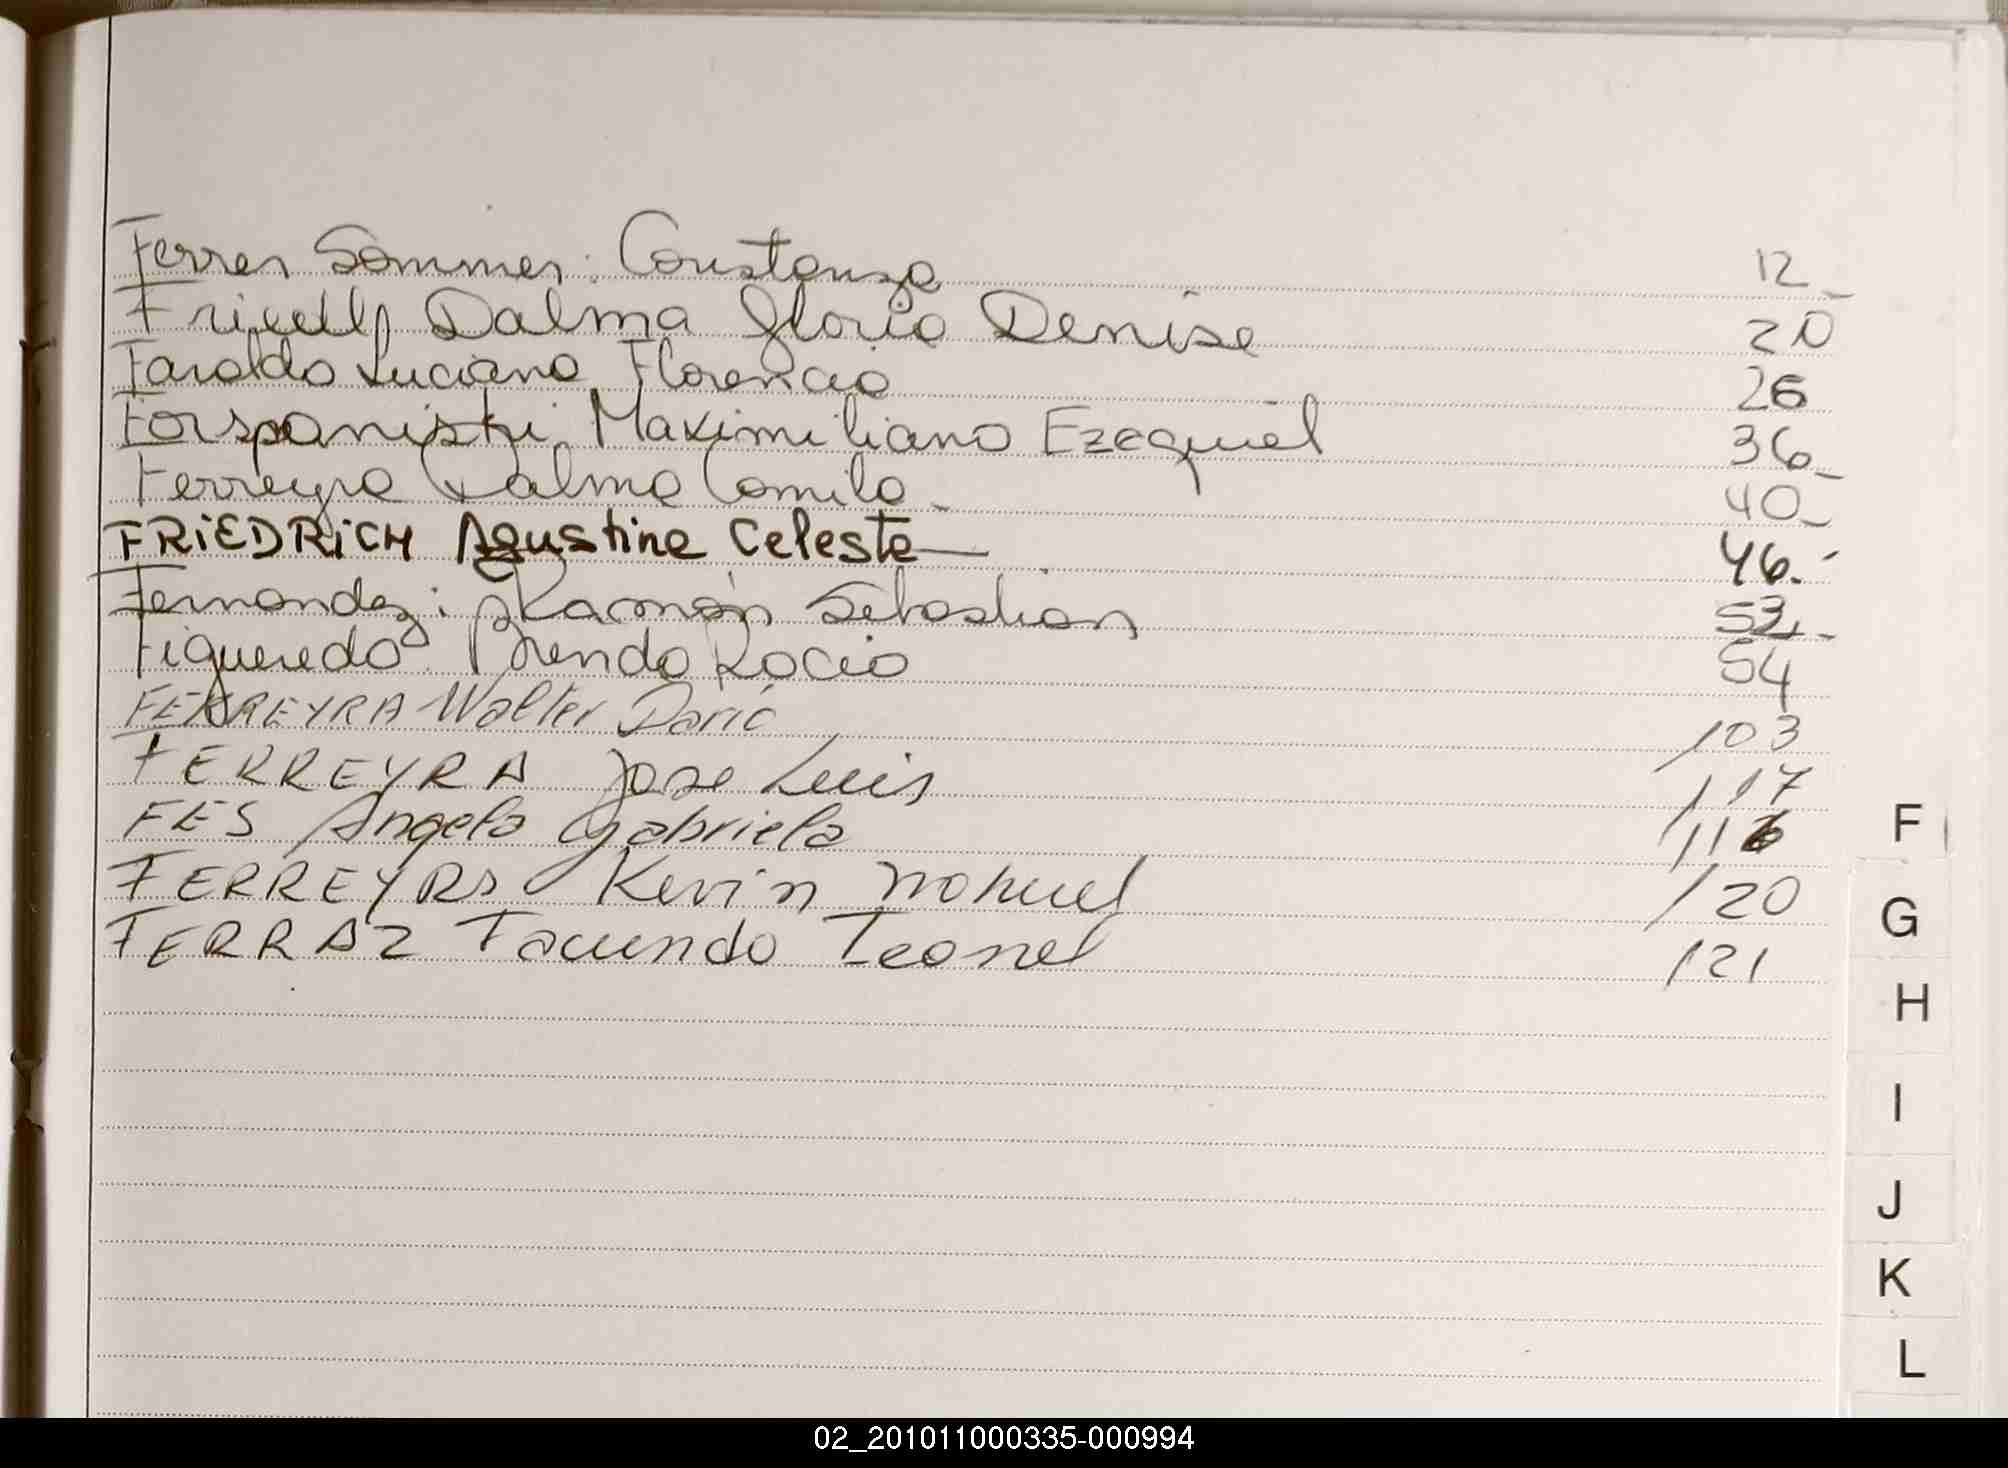 Ferrer Sommer: Constanza 12_
Dalma Gloria Denise 20
Faraldo Luciano Florencio 26
Forspaniski. Maximiliano Ezequiel 36_
Ferreyra Dalma Camila_ 40_
FRiEDRiCH Agustina Celeste— 46.-
Fernandez: Ramón Sebastian 53_-
Figueredo Brenda Rocio 54
FERREYRA Walter Dario 103
FERREYRA Jose Luis 117
FES Angela Gabriela 116
FERREYRA Kevin Nahuel 120
FERRAZ Facundo Leonel 121
F
G
H
I
J
K
L
02_201011000335-000994